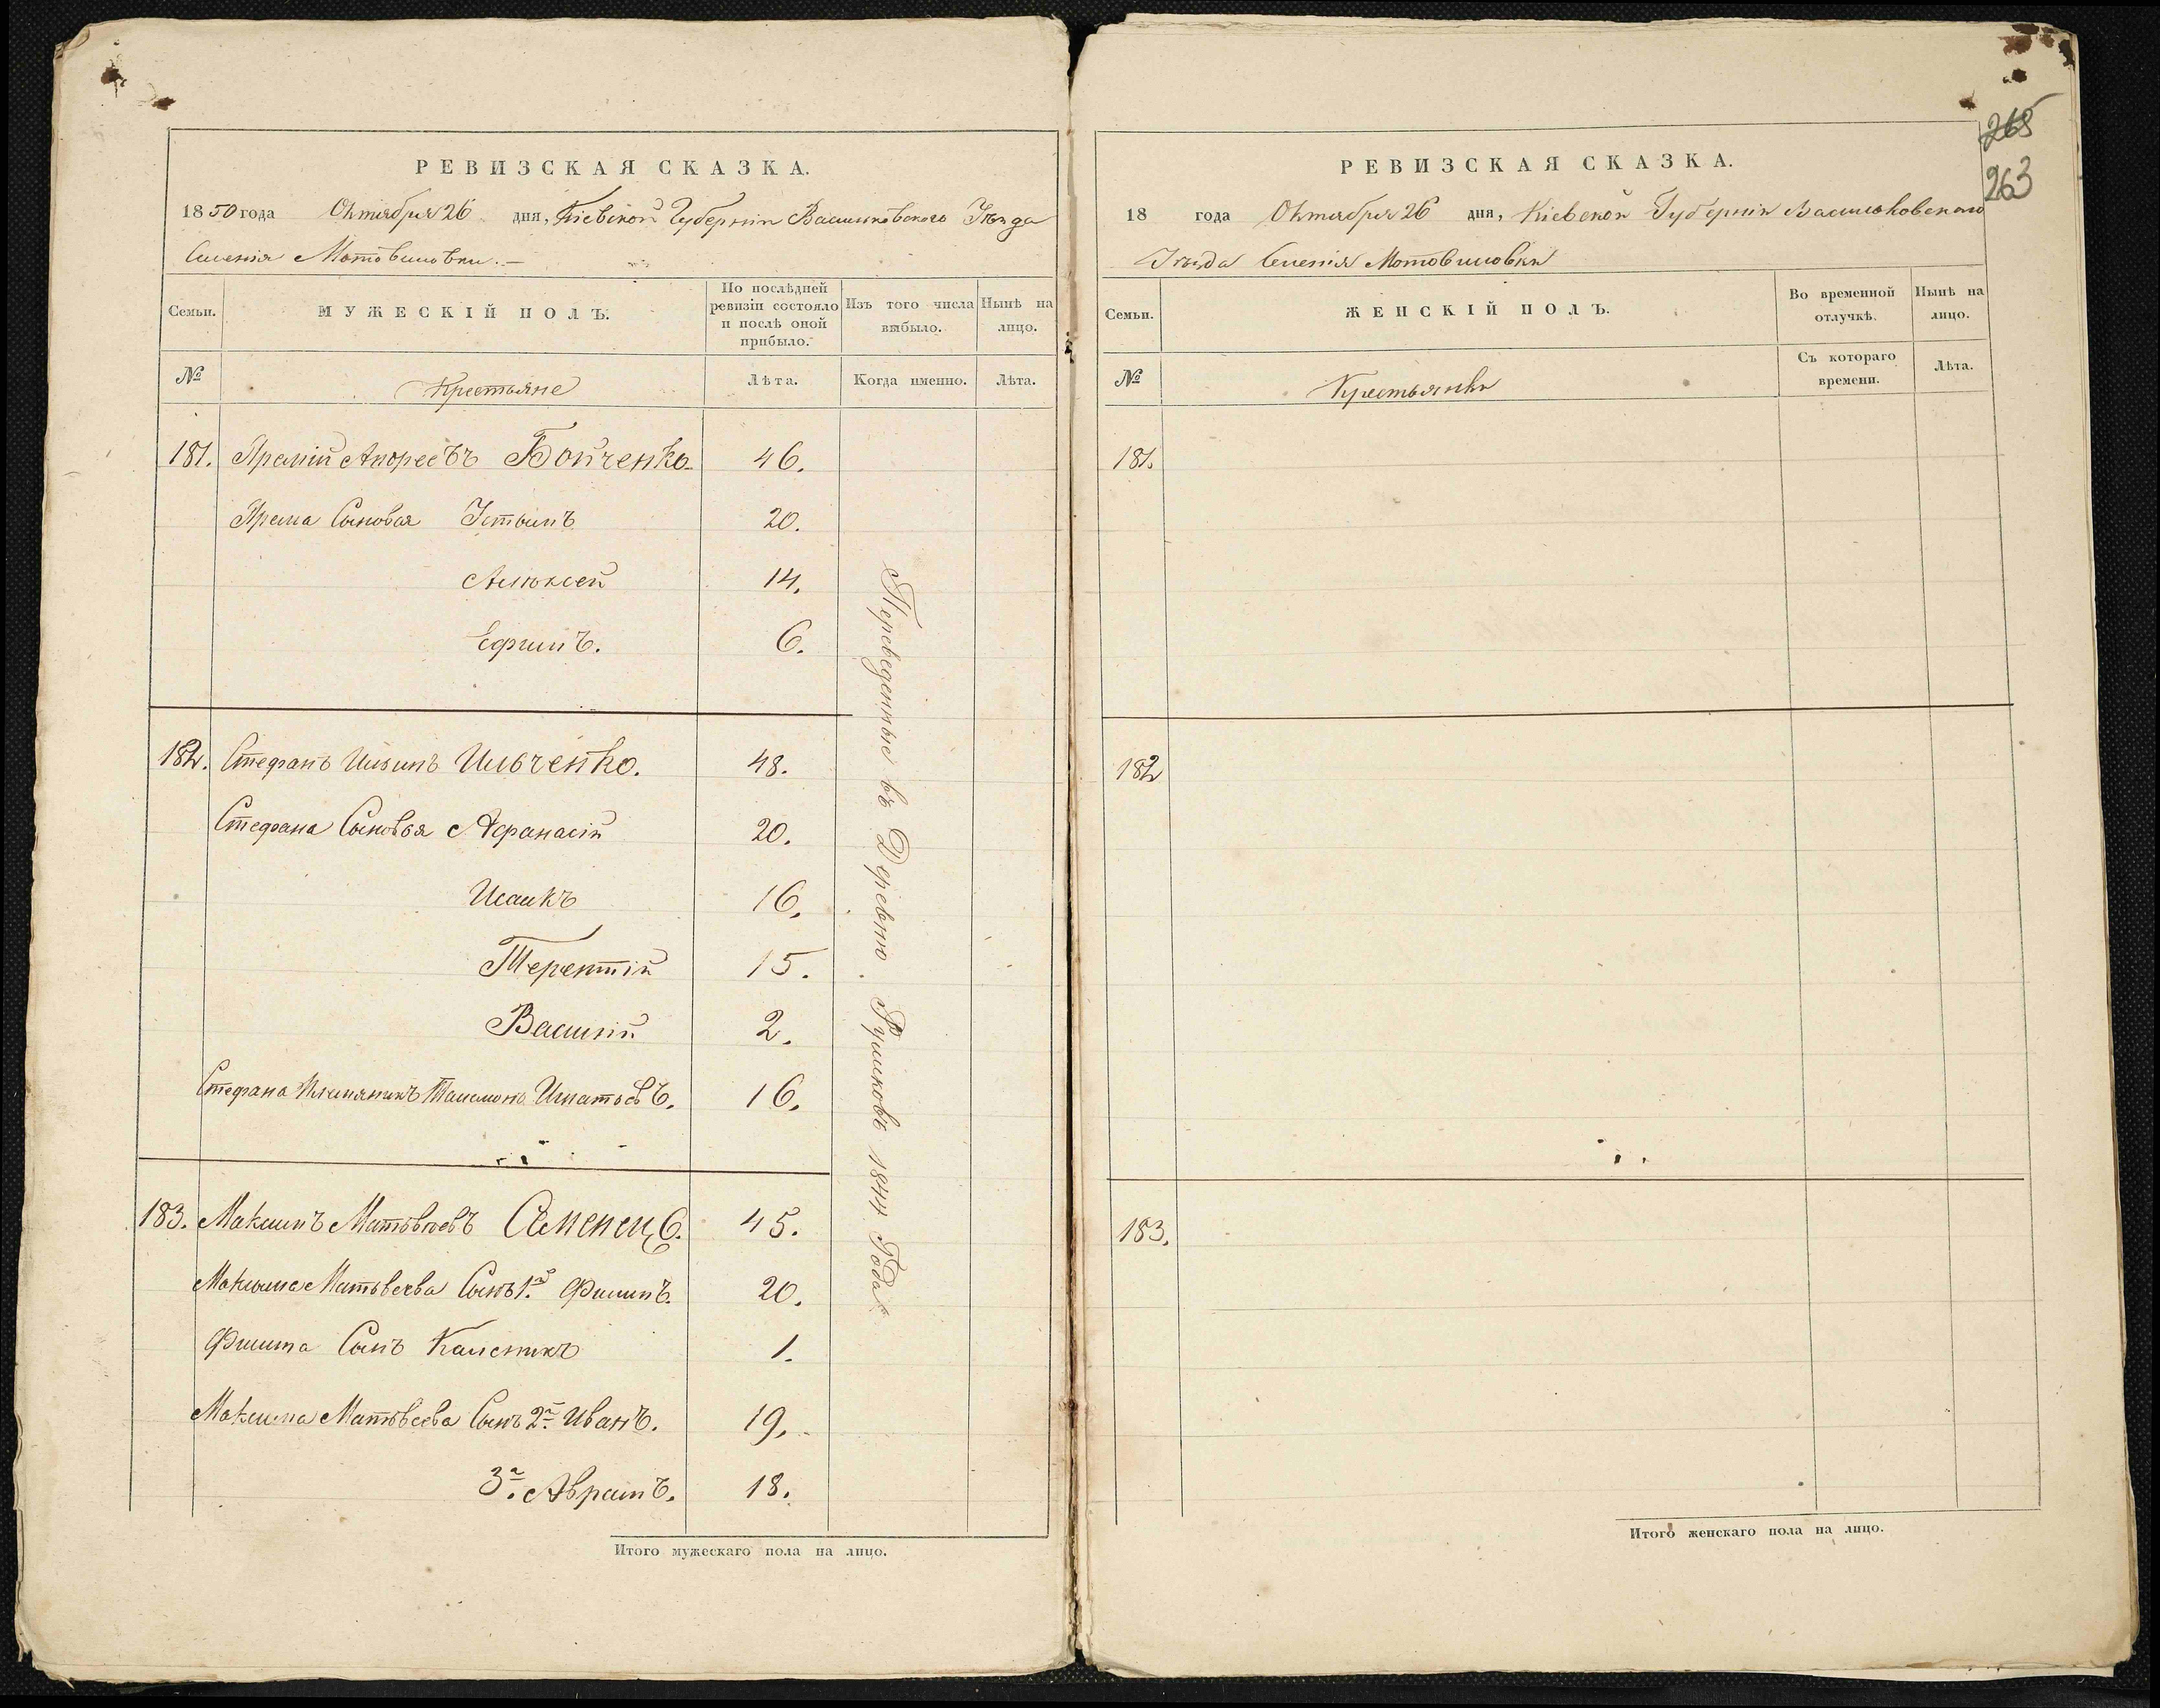 РЕВИЗСКАЯ СКАЗКА.
1850 года Октября 26 дня, Кіевской Губерніи Васильковского Уѣзда
Селенія Мотовиловки.—
Семьи.
МУЖЕСКІЙ ПОЛЪ.
По послѣдней ревизіи состояло и послѣ оной прибыло.
Изъ того числа выбыло.
Нынѣ на лицо.
№
Крестьяне
Лѣта.
Когда именно.
Лѣта.
181. Яремій Андреевъ Бойченко. 46.
Ярема Сыновья Устымъ 20.
Алексей 14.
Ефимъ. 6.
182. Стефанъ Ильинъ Ильченко. 48.
Стефана Сыновья Афанасій 20.
Исаикъ 16.
Терентій 15.
Василій 2.
Стефана Племяникъ Игнатьевъ. 16.
183. Максимъ Матвѣевъ Семенец. 45.
Максима Матвеева Сынъ 1й Филипъ. 20.
Филипа Сынъ Каленикъ 1.
Максима Матвеева Сынъ 2й Иванъ. 19.
3й Аврамъ. 18.
Переведенные въ Деревню Руликовъ 1844 Года
Итого мужескаго пола на лицо.
265
263
РЕВИЗСКАЯ СКАЗКА.
18 года Октября 26 дня, Кіевской Губерніи Васильковского
Уѣзда Селенія Мотовиловки
Семьи.
ЖЕНСКІЙ ПОЛЪ.
Во временной отлучкѣ.
Нынѣ на лицо.
№
Крестьянки
Съ котораго времени.
Лѣта.
181.
182
183.
Итого женскаго пола на лицо.